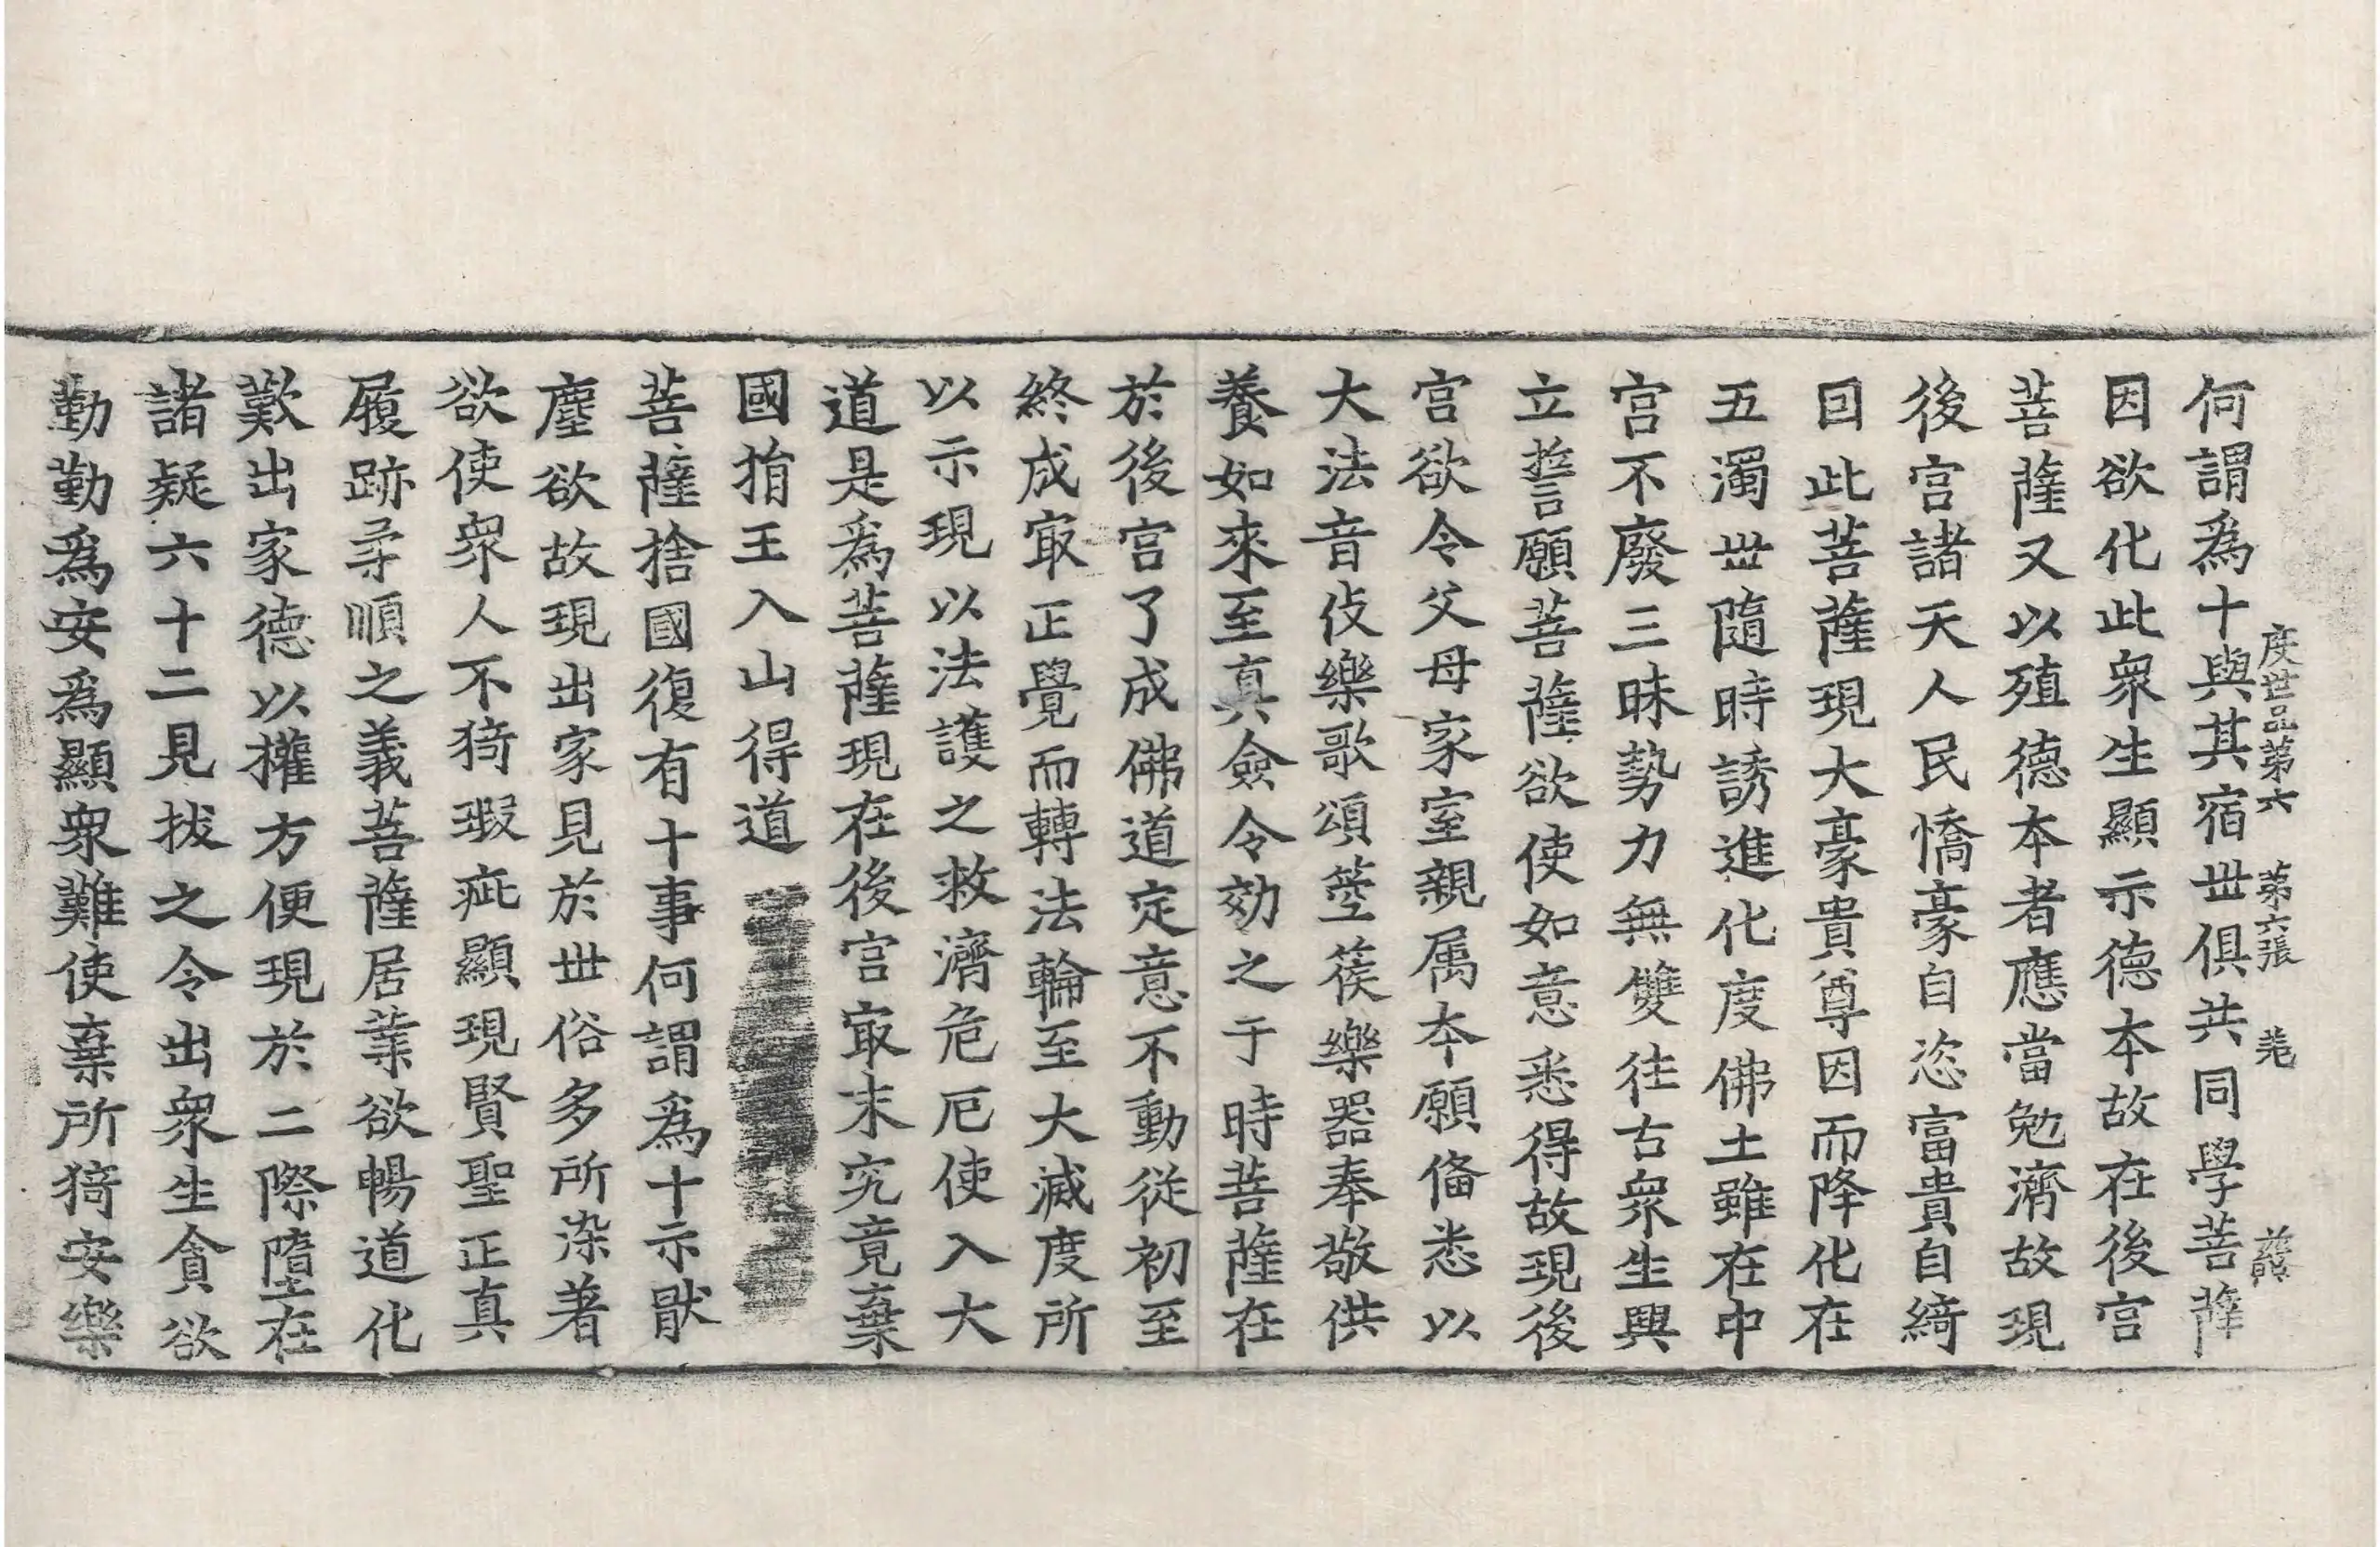 度世品第六 第六張
何謂爲十與其宿丗俱共同學菩薩
因欲化此衆生顯示德本故在後宫
菩薩又以殖德本者應當勉濟故現
後宫諸天人民憍豪自恣富貴自綺
囙此菩薩現大豪貴尊因而降化在
五濁丗隨時誘進化度佛土雖在中
宫不廢三昧勢力無雙往古衆生興
立誓願菩薩欲使如意悉得故現後
宫欲令父母家室親属本願俻悉以
大法音伎樂歌頌箜篌樂器奉敬供
養如來至真僉令効之于時菩薩在
於後宫了成佛道定意不動從初至
終成㝡正覺而轉法輪至大滅度所
以示現以法護之救濟危厄使入大
道是爲菩薩現在後宫㝡末究竟棄
國捐王入山得道
菩薩捨國復有十事何謂爲十示猒
塵欲故現出家見於丗俗多所染著
欲使衆人不猗瑕疵顯現賢聖正真
履跡尋順之義菩薩居業欲暢道化
歎出家德以權方便現於二際墮在
諸疑六十二見拔之令出衆生貪欲
勤勤爲安爲顯衆難使棄所猗安樂